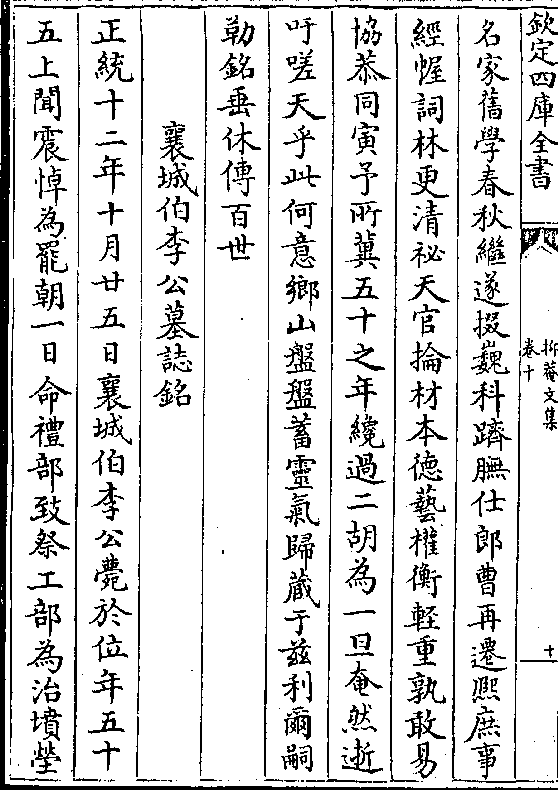 欽定四庫全書
抑菴文集
卷十
十
名家舊學春秋繼遂掇巍科躋膴仕郎曹再遷熈庶事
經幄詞林更清祕天官掄材本德藝權衡輕重孰敢易
協恭同寅予所冀五十之年纔過二胡為一旦奄然逝
吁嗟天乎此何意鄉山盤盤蓄靈氣歸藏于兹利爾嗣
勒銘垂休傳百世
襄城伯李公墓誌銘
正統十二年十月廿五日襄城伯李公薨於位年五十
五上聞震悼為罷朝一日命禮部致祭工部為治墳塋